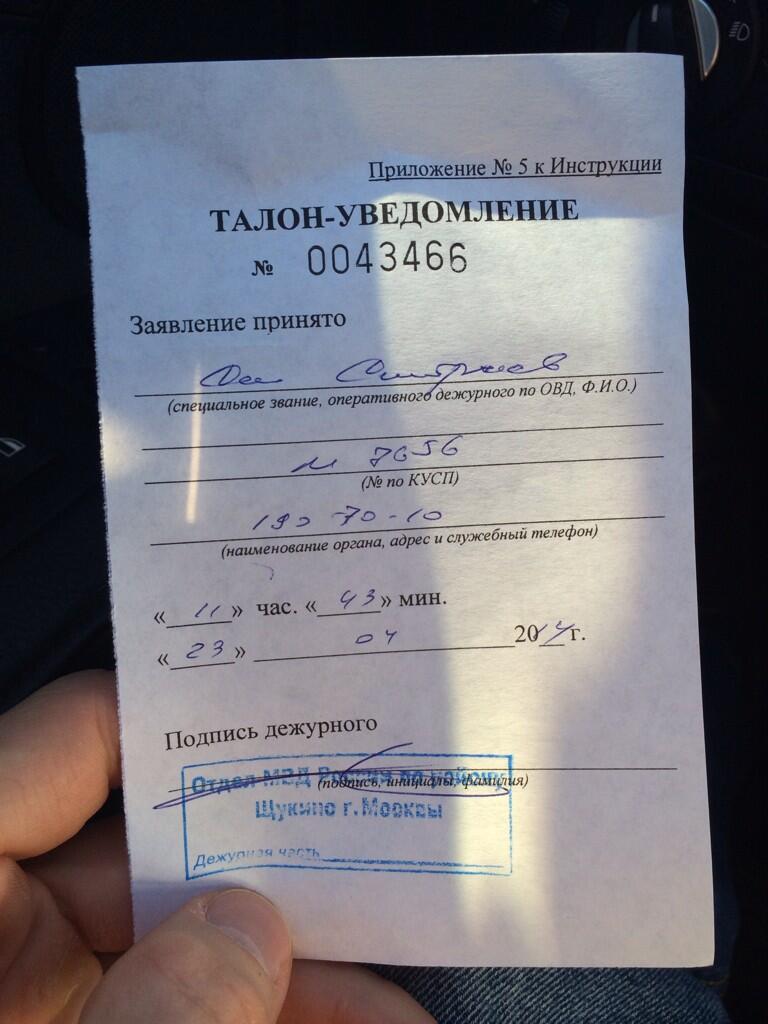 Приложение № 5 к Инструкции
ТАЛОН-УВЕДОМЛЕНИЕ
№ 0043466
Заявление принято
(специальное звание, оперативного дежурного по ОВД, Ф.И.О.)
7656
(№ по КУСП)
190 70-10
(наименование органа, адрес и служебный телефон)
« 11 » час. « 43 » мин.
« 23 » 04 2014 г.
Подпись дежурного
(подпись, инициалы, фамилия)
Отдел МВД России по району
Щукино г.Москвы
Дежурная часть